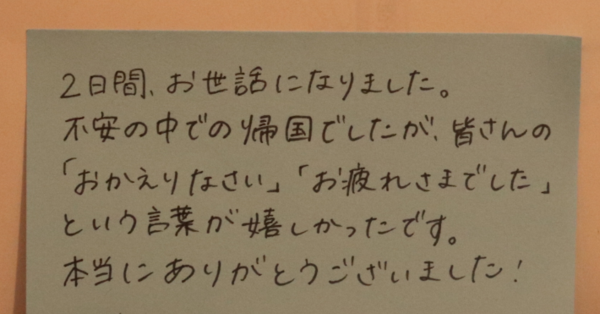 2日間、お世話になりました。
不安の中での帰国でしたが、皆さんの
「おかえりなさい」「お疲れさまでした」
という言葉が嬉しかったです。
本当にありがとうございました!